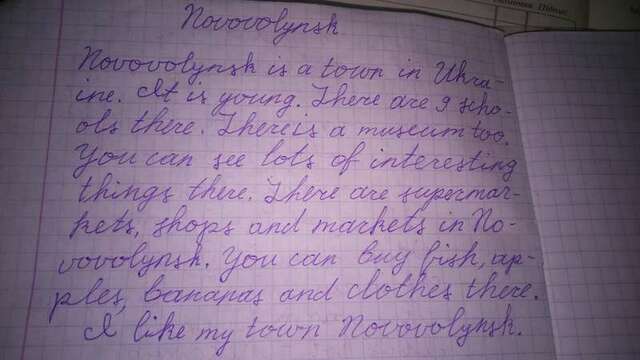 Novovolynsk
Novovolynsk is a town in Ukra-
ine. It is young. There are 9 scho-
ols there. There is a museum too.
You can see lots of interesting
things there. There are supermar-
kets, shops and markets in No-
vovolynsk. You can buy fish, ap-
ples, bananas and clothes there.
I like my town Novovolynsk.